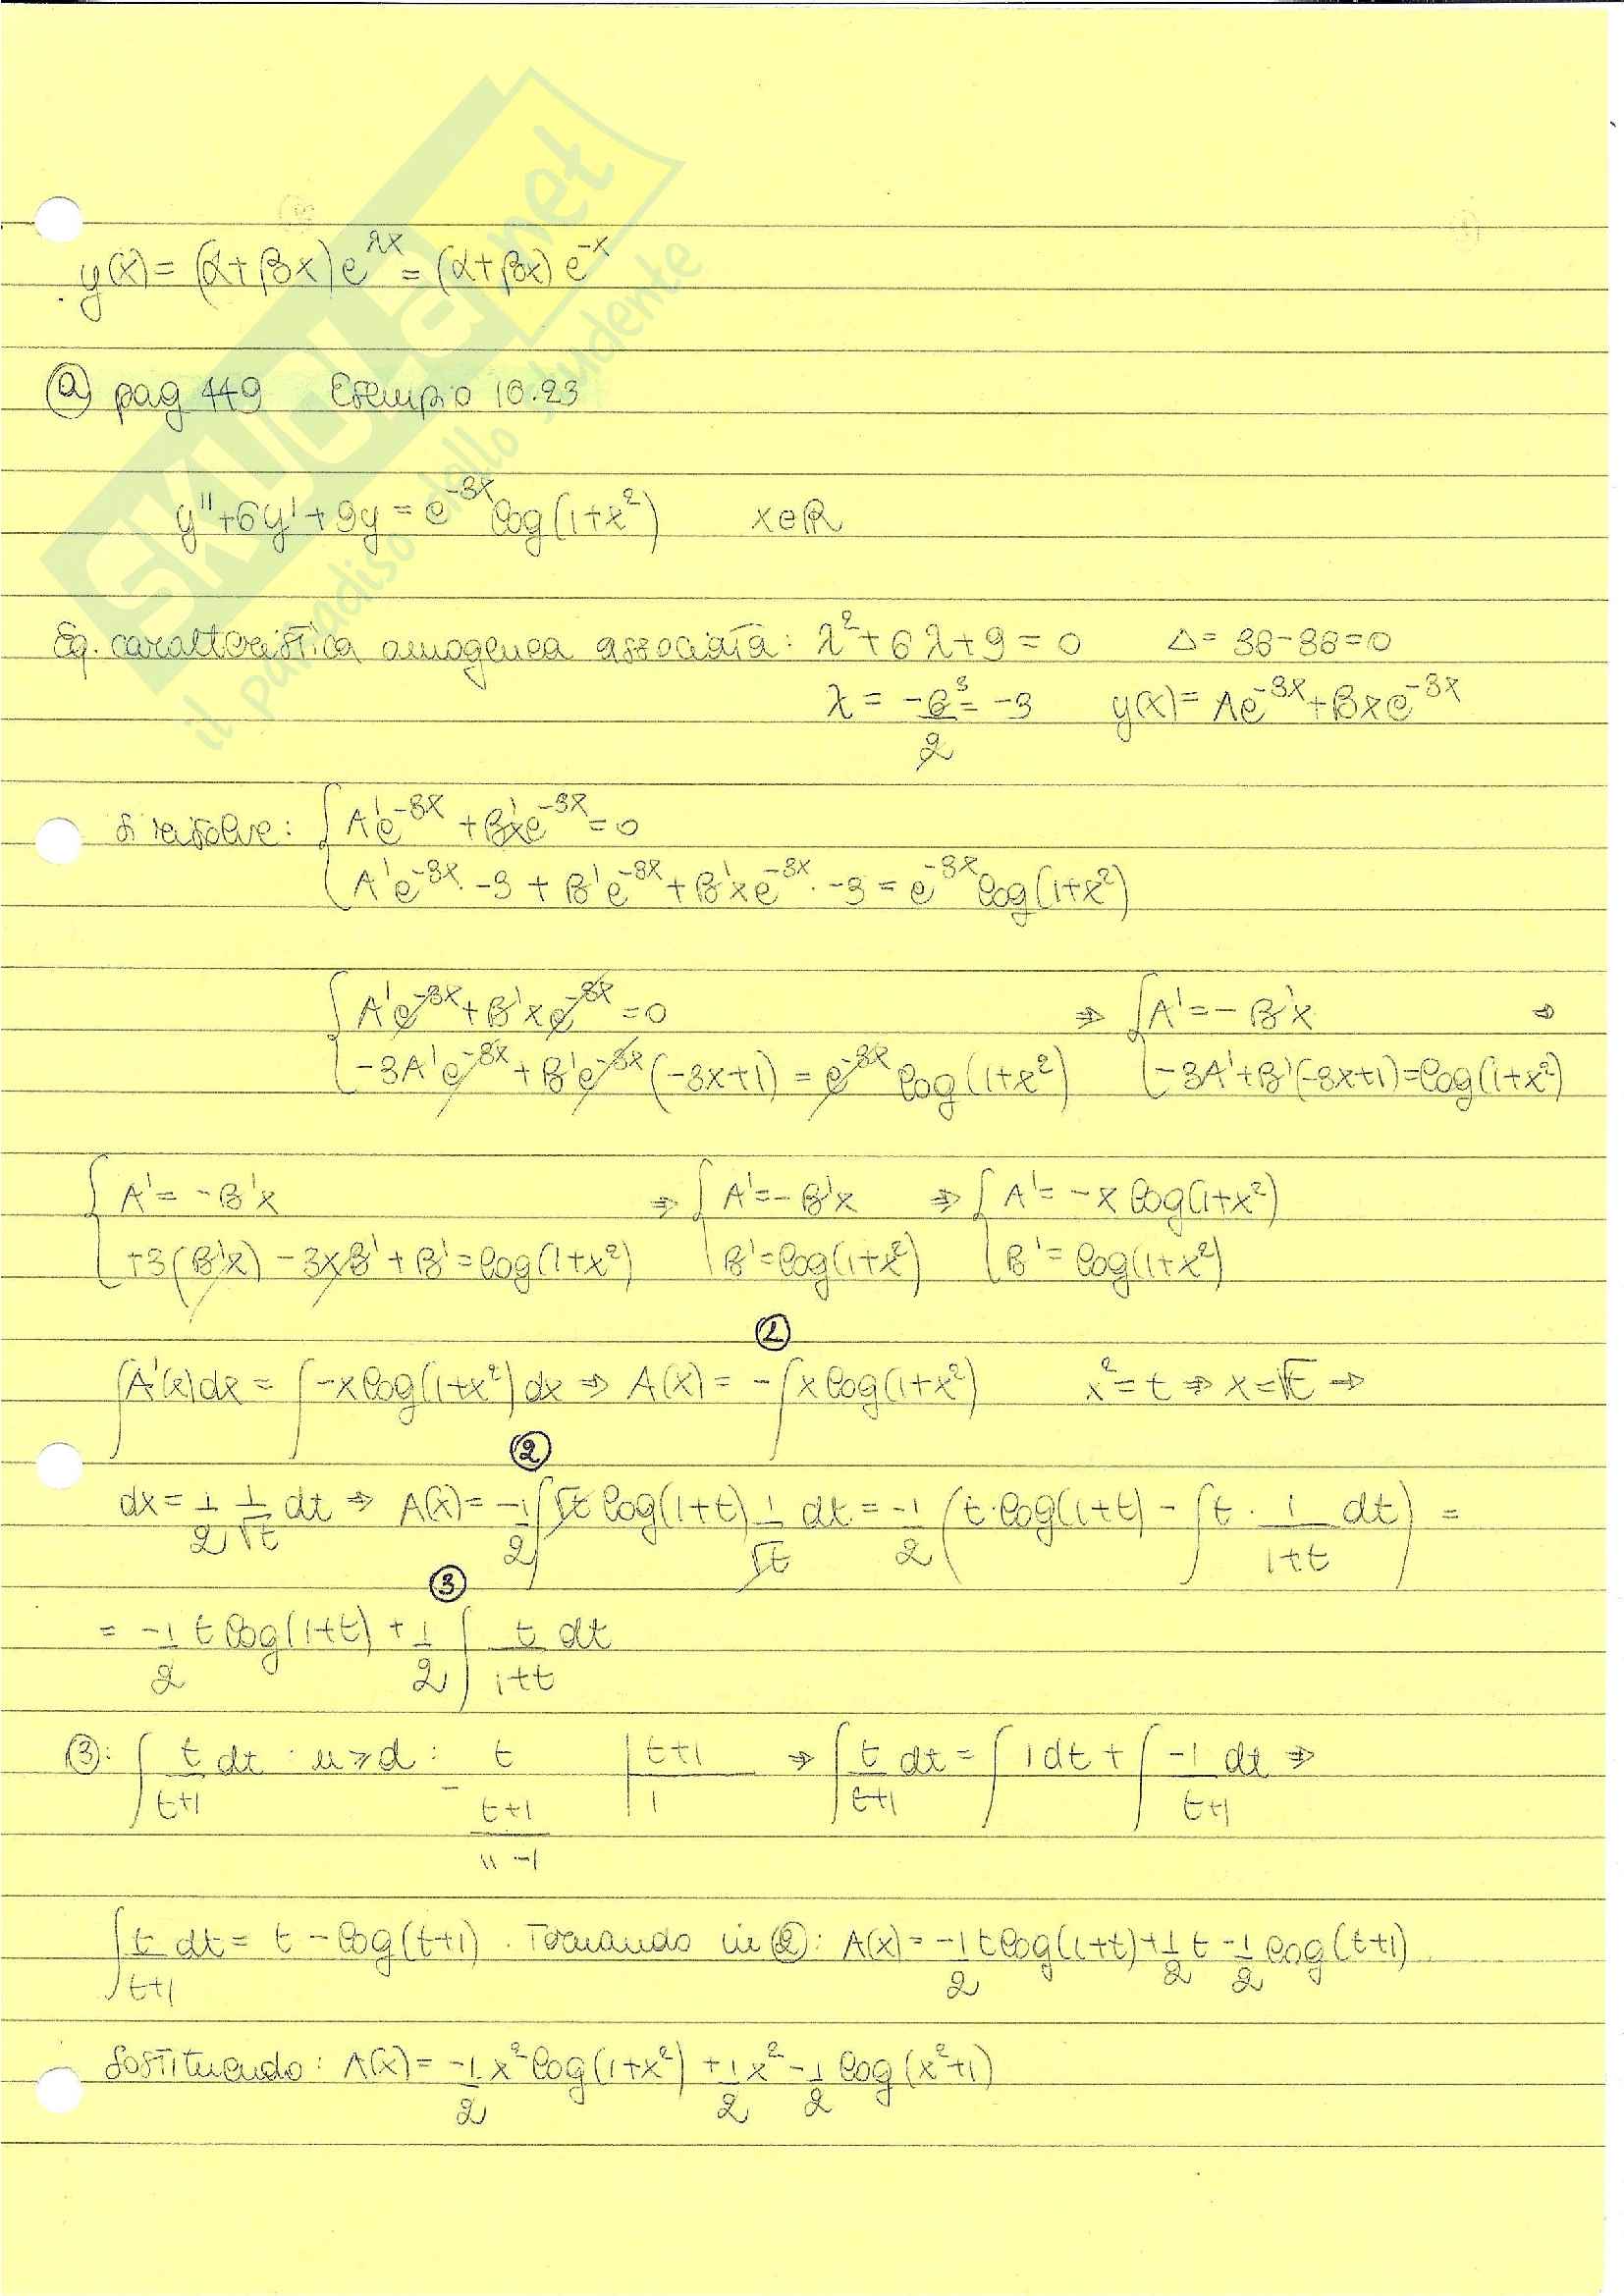 SKUOLA.net
il paradiso dello studente
y(x) = (α+βx) e^{λx} = (α+βx) e^{-x}
ⓐ pag 449 Esempio 10.23
y''+6y'+9y = e^{-3x} log(1+x²) x∈ℝ
Eq. caratteristica omogenea associata: λ²+6λ+9=0 Δ= 36-36=0
λ = -6/2 ³ = -3 y(x)= Ae^{-3x}+Bxe^{-3x}
Si risolve: { A'e^{-3x} + B'xe^{-3x} = 0
A'e^{-3x}· -3 + B'e^{-3x} + B'xe^{-3x}· -3 = e^{-3x} log(1+x²)
{ A'e^{-3x} + B'xe^{-3x} = 0 ⇒ { A' = -B'x ⇒
-3A'e^{-3x} + B'e^{-3x}(-3x+1) = e^{-3x} log(1+x²) -3A'+B'(-3x+1)=log(1+x²)
{ A' = -B'x ⇒ { A' = -B'x ⇒ { A' = -x log(1+x²)
+3(B'x) -3xB' + B' = log(1+x²) B' = log(1+x²) B' = log(1+x²)
①
∫A'(x)dx = ∫-x log(1+x²)dx ⇒ A(x) = -∫x log(1+x²) x²=t ⇒ x=√t ⇒
②
dx = 1/2 1/√t dt ⇒ A(x) = -1/2 ∫√t log(1+t) 1/√t dt = -1/2 (t·log(1+t) - ∫t · 1/(1+t) dt) =
③
= -1/2 t log(1+t) + 1/2 ∫ t/(1+t) dt
③: ∫ t/(t+1) dt · n≥d : t | t+1 ⇒ ∫ t/(t+1) dt = ∫1dt + ∫ -1/(t+1) dt ⇒
- t+1 | 1
" -1
∫ t/(t+1) dt = t - log(t+1). Tornando in ②: A(x) = -1/2 t log(1+t) + 1/2 t - 1/2 log(t+1).
Sostituendo: A(x) = -1/2 x² log(1+x²) + 1/2 x² - 1/2 log(x²+1)